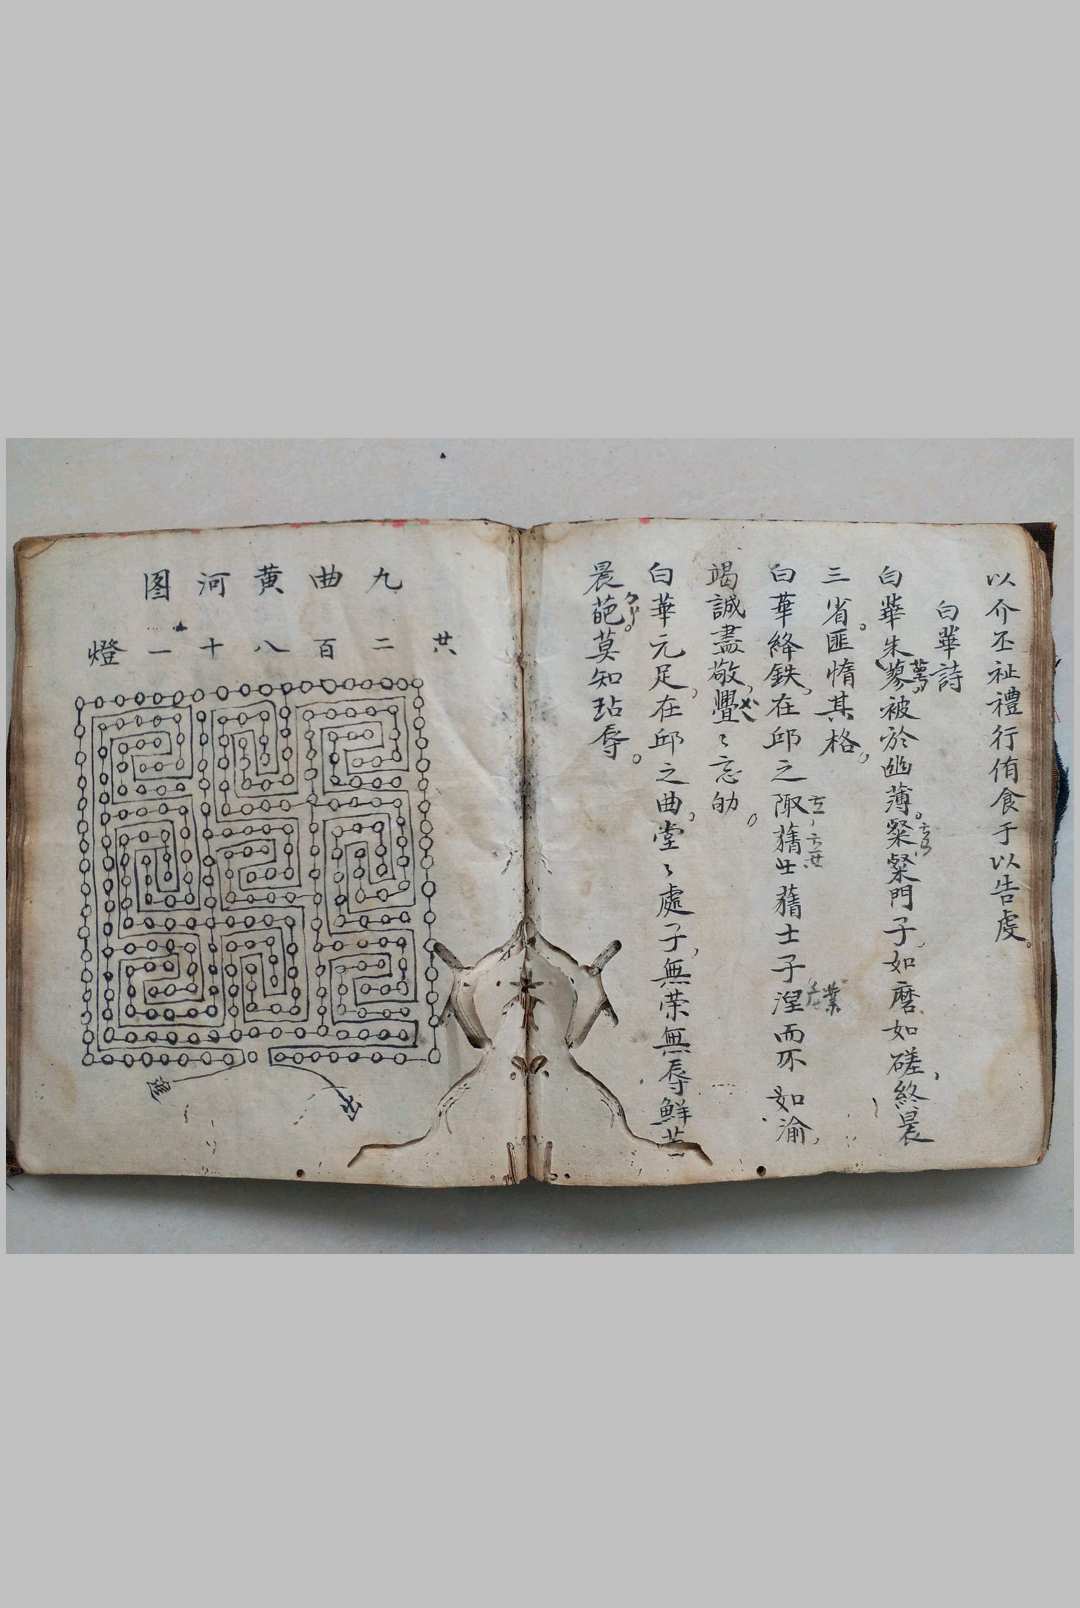 以介丕祉禮行侑食于以告虔。
白華詩
白華朱蓼被於幽薄。粲粲門子,如磨如磋,終晨
三省。匪惰其格,
白華絳趺,在邱之陬蒨蒨士子涅而不如渝,
竭誠盡敬,亹〻忘劬。
白華元足,在邱之曲。堂〻處子,無荣無辱鮮
晨葩。莫知玷辱。
九曲黄河图
共二百八十一燈
進